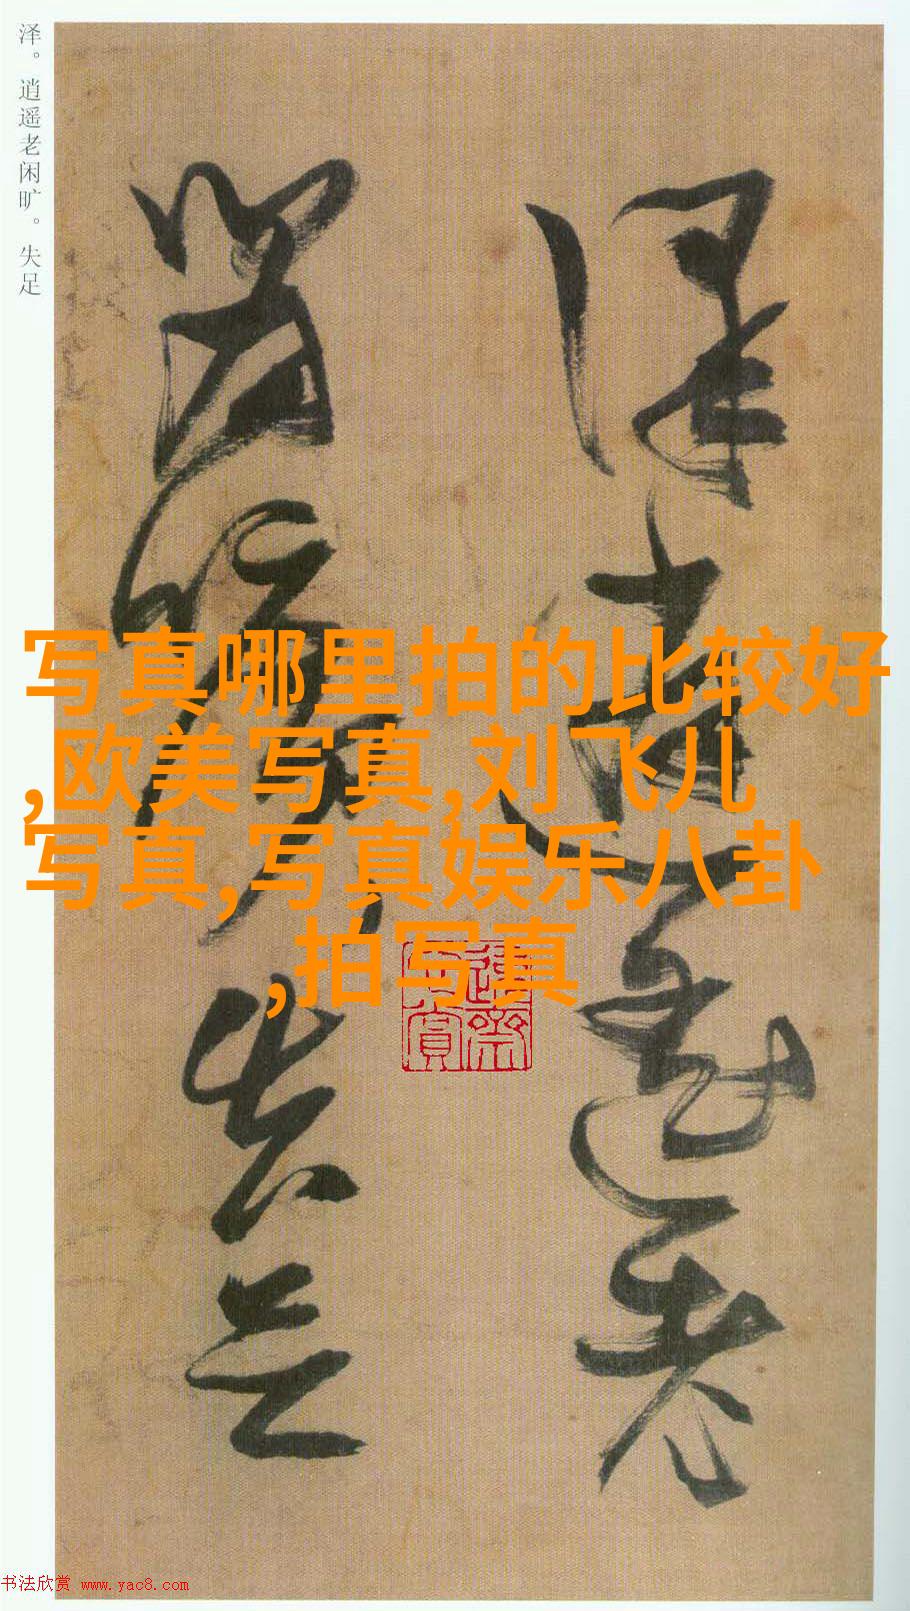 泽。逍遥老闲旷。失足
泽逍遥老
闲旷失足
写真哪里拍的比较好
,欧美写真,刘飞儿
写真,写真娱乐八卦
,拍写真
书法欣赏 www.yac8.com